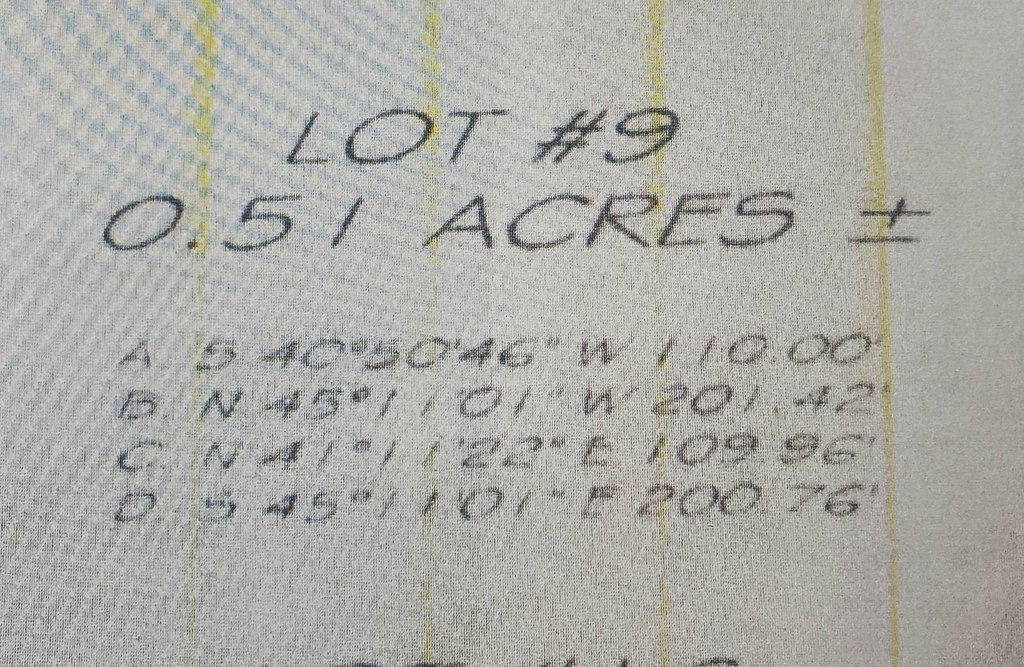 LOT #9
0.51 ACRES ±
A. S 40°50'46" W 110.00'
B. N 45°11'01" W 201.42'
C. N 41°11'22" E 109.96'
D. S 45°11'01" E 200.76'